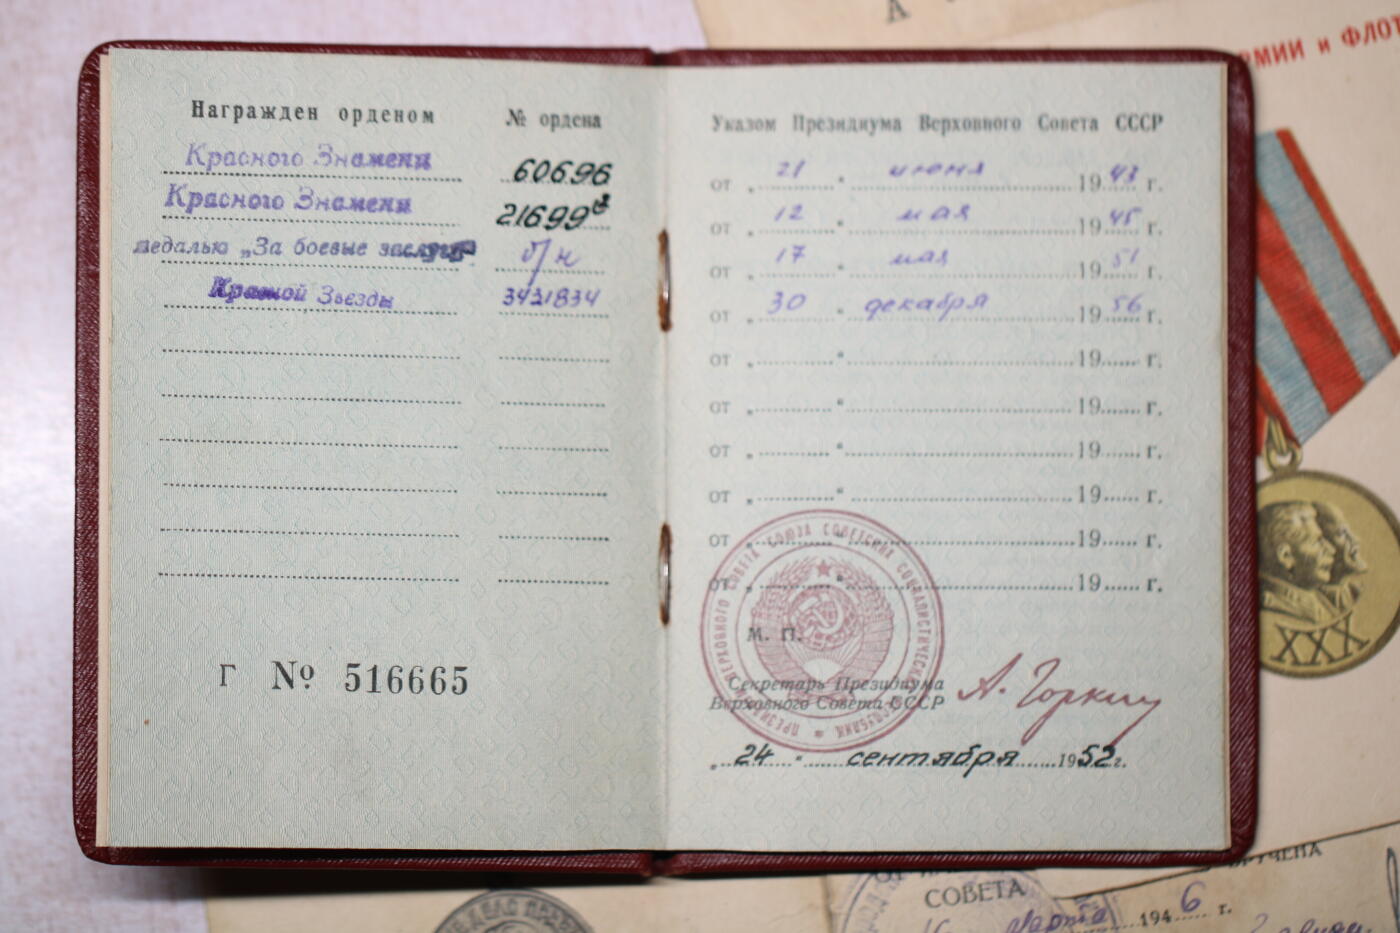 А
РМИИ и ФЛОТ
Награжден орденом № ордена Указом Президиума Верховного Совета СССР
Красного Знамени 60696 от „ 21 “ июня 19 43 г.
Красного Знамени 21699 от „ 12 “ мая 19 45 г.
медалью „За боевые заслуги б/н от „ 17 “ мая 19 51 г.
Красной Звезды 3431834 от „ 30 “ декабря 19 56 г.
от „ “ 19 г.
от „ “ 19 г.
от „ “ 19 г.
от „ “ 19 г.
от „ “ 19 г.
от „ “ 19 г.
М. П.
Г № 516665
Секретарь Президиума
Верховного Совета СССР А. Горкин
„ 24 “ сентября 1952 г.
ПРЕЗИДИУМ ВЕРХОВНОГО СОВЕТА СОЮЗА СОВЕТСКИХ СОЦИАЛИСТИЧЕСКИХ РЕСПУБЛИК
XXX
ВРУЧЕНА
СОВЕТА
марта 1946 г.